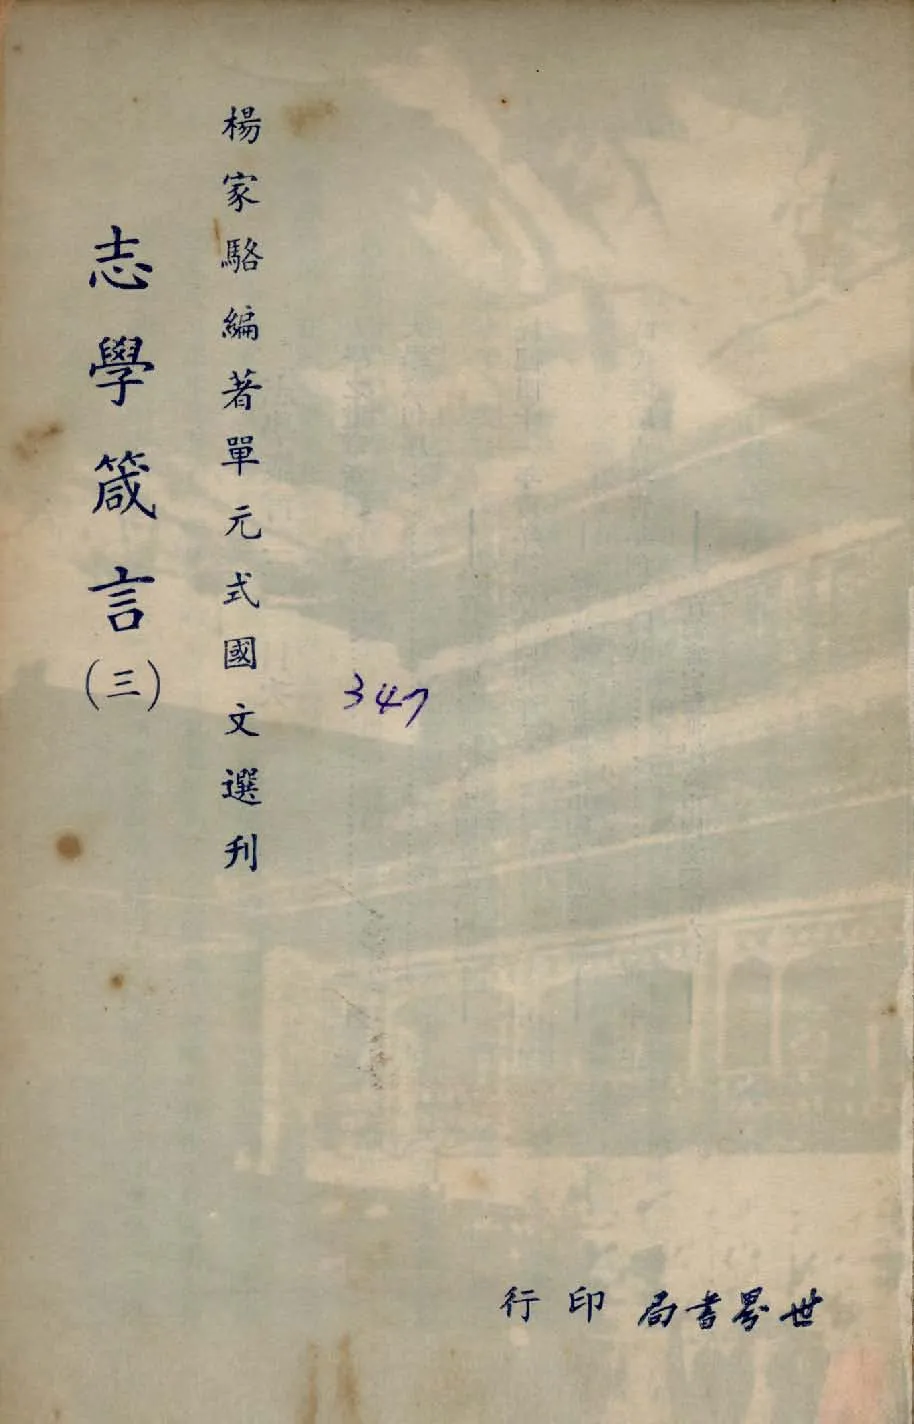 楊家駱編著單元式國文選刊
志學箴言(三)
347
世界書局 印行